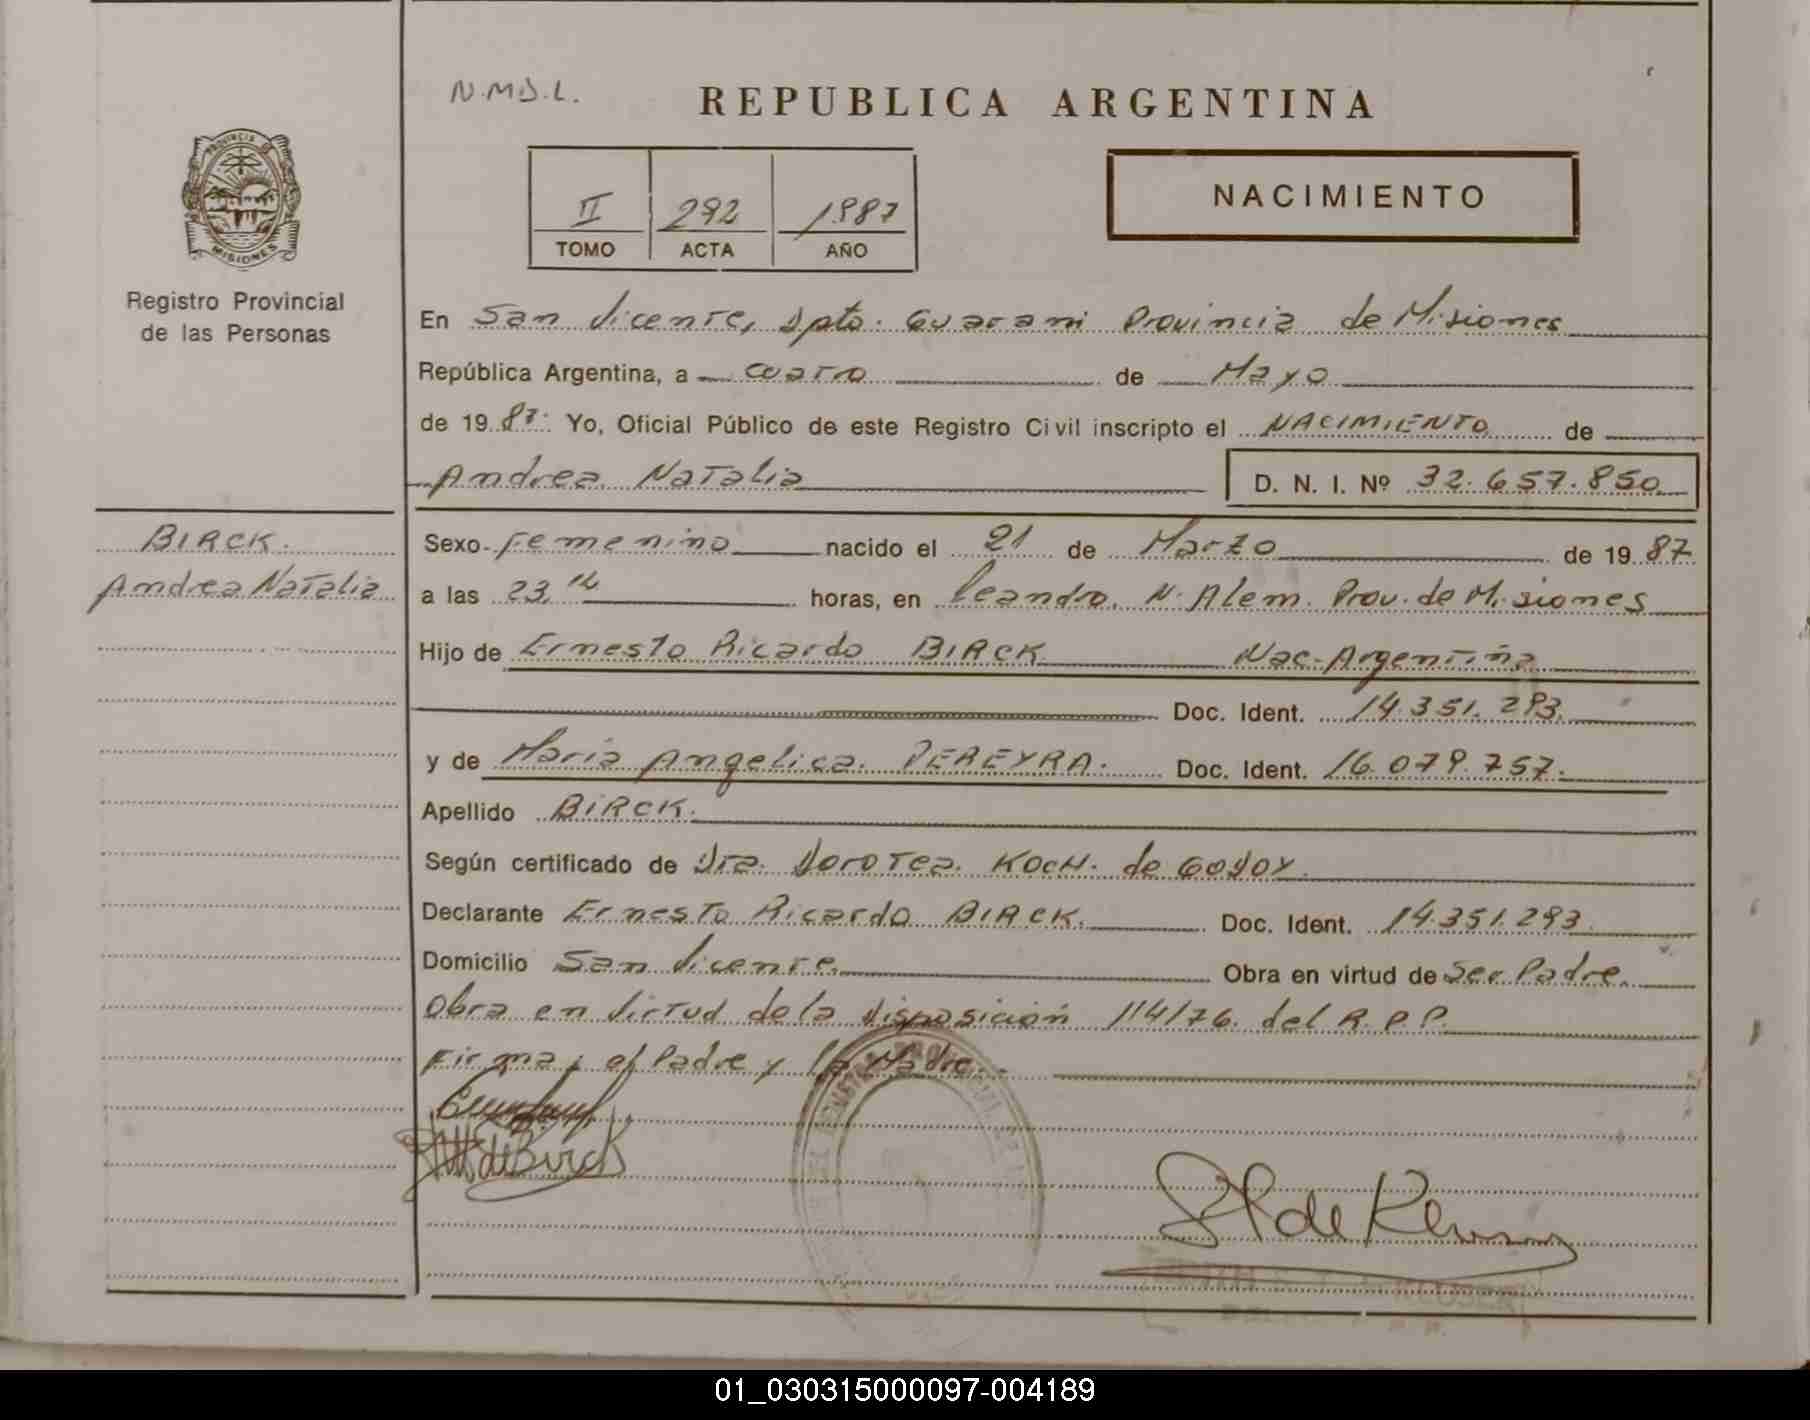 N.M.D.L.
REPUBLICA ARGENTINA
PROVINCIA DE
MISIONES
Registro Provincial
de las Personas
II 292 1987
TOMO ACTA AÑO
NACIMIENTO
En San Vicente, Dpto. Guarani Provincia de Misiones
República Argentina, a cuatro de Mayo
de 1987. Yo, Oficial Público de este Registro Civil inscripto el NACIMIENTO de
Andrea Natalia D. N. I. Nº 32.657.850
BIRCK.
Andrea Natalia
Sexo Femenino nacido el 21 de Marzo de 1987
a las 23, horas, en Leandro. N. Alem. Prov. de Misiones
Hijo de Ernesto Ricardo BIRCK Nac. Argentina
Doc. Ident. 14.351.293.
y de Maria Angelica. PEREYRA. Doc. Ident. 16.079.757.
Apellido BIRCK.
Según certificado de Dra. Dorotea. KOCH. de GODOY.
Declarante Ernesto Ricardo BIRCK. Doc. Ident. 14.351.293
Domicilio San Vicente. Obra en virtud de Ser Padre.
Obra en Virtud de la Disposición 114/76. del R.P.P.
Firma; el Padre y la Madre.
de Birck
01_030315000097-004189